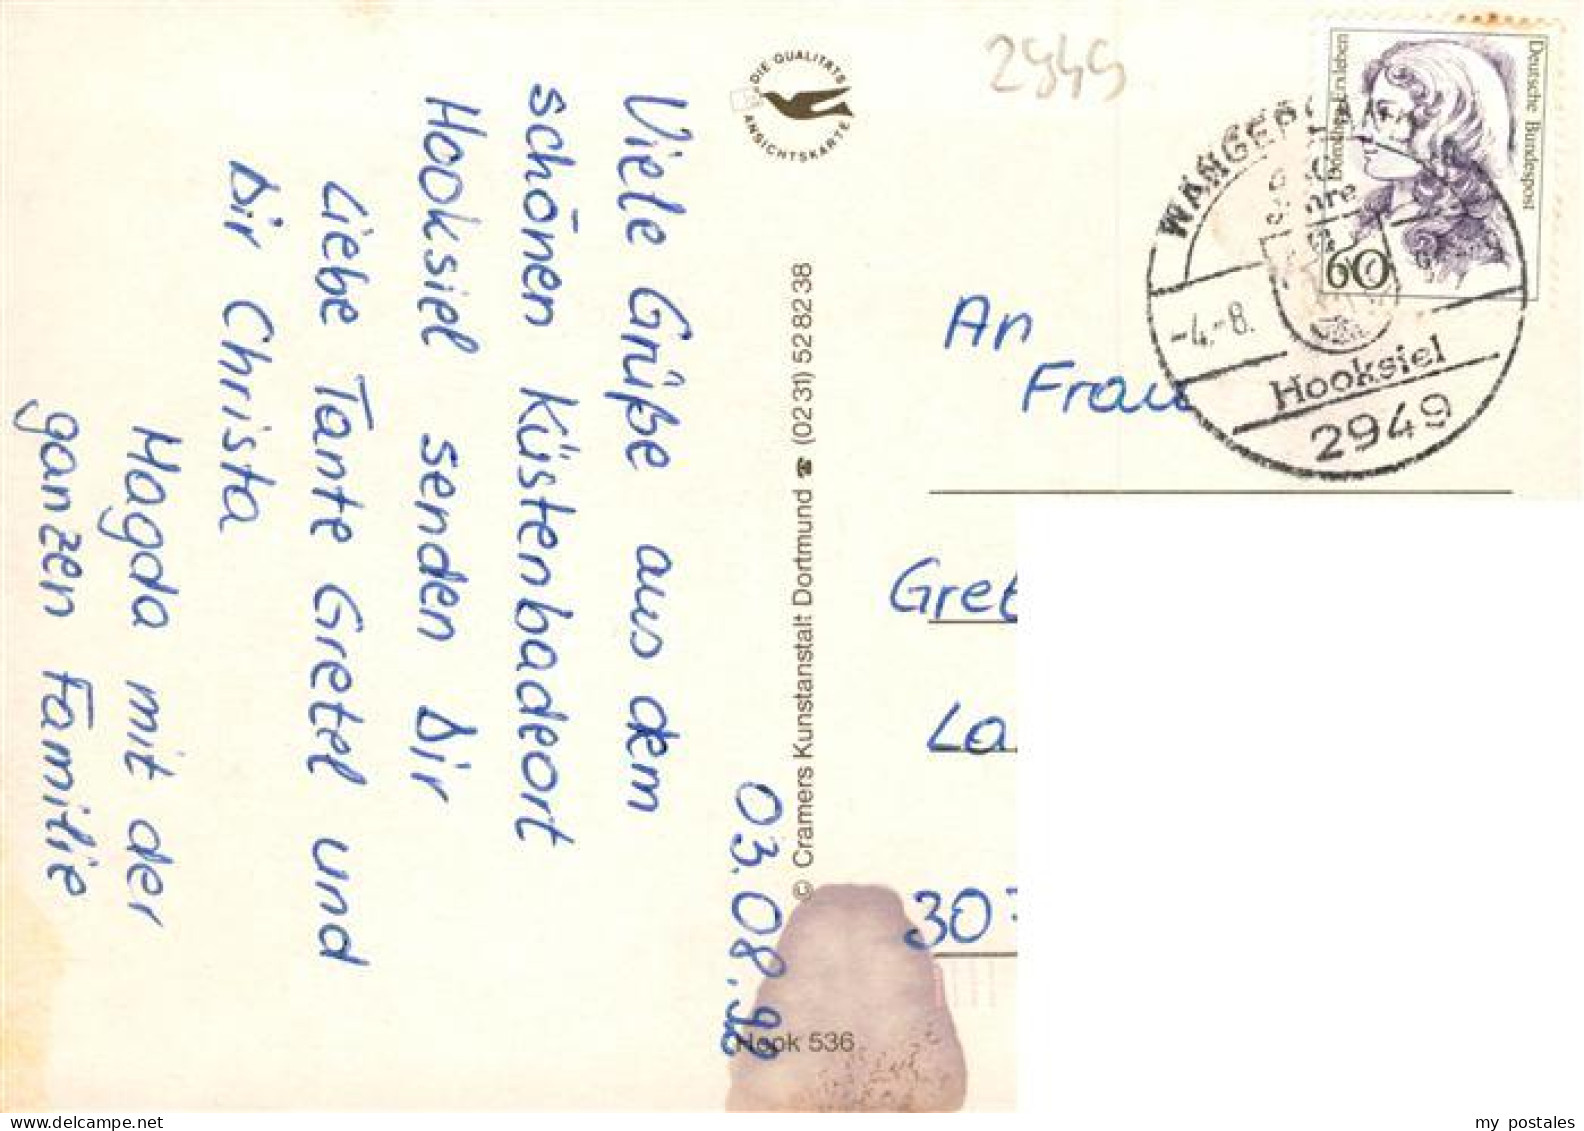 2949
DIE QUALITÄTS
ANSICHTSKARTE
Deutsche Bundespost
60
WANGER
-4.-8.
Hooksiel
2949
03.08.92
Viele Grüße aus dem
schönen Küstenbadeort
Hooksiel senden dir
Liebe Tante Gretel und
dir Christa
Magda mit der
ganzen Familie
© Cramers Kunstanstalt Dortmund ☎ (0231) 528238
An
Frau
Gret
La
30
Hook 536
my postales